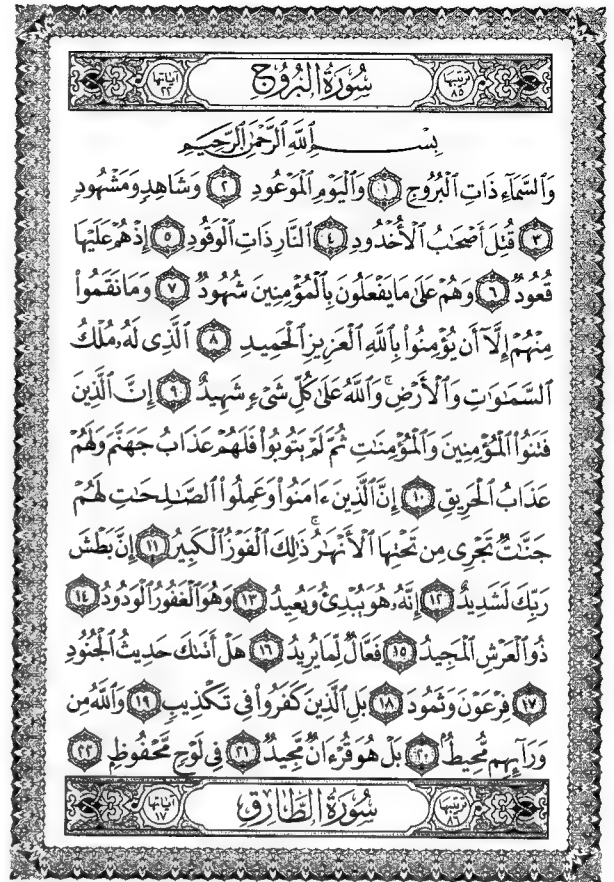 ترتيبها ٨٥ سُورَةُ الْبُرُوجِ آياتها ٢٢
بِسْمِ اللَّهِ الرَّحْمَٰنِ الرَّحِيمِ
وَالسَّمَآءِ ذَاتِ الْبُرُوجِ ١ وَالْيَوْمِ الْمَوْعُودِ ٢ وَشَاهِدٍ وَمَشْهُودٍ
٣ قُتِلَ أَصْحَٰبُ الْأُخْدُودِ ٤ النَّارِ ذَاتِ الْوَقُودِ ٥ إِذْ هُمْ عَلَيْهَا
قُعُودٌ ٦ وَهُمْ عَلَىٰ مَا يَفْعَلُونَ بِالْمُؤْمِنِينَ شُهُودٌ ٧ وَمَا نَقَمُوا۟
مِنْهُمْ إِلَّآ أَن يُؤْمِنُوا۟ بِاللَّهِ الْعَزِيزِ الْحَمِيدِ ٨ الَّذِى لَهُۥ مُلْكُ
السَّمَٰوَٰتِ وَالْأَرْضِ ۚ وَاللَّهُ عَلَىٰ كُلِّ شَىْءٍ شَهِيدٌ ٩ إِنَّ الَّذِينَ
فَتَنُوا۟ الْمُؤْمِنِينَ وَالْمُؤْمِنَٰتِ ثُمَّ لَمْ يَتُوبُوا۟ فَلَهُمْ عَذَابُ جَهَنَّمَ وَلَهُمْ
عَذَابُ الْحَرِيقِ ١٠ إِنَّ الَّذِينَ ءَامَنُوا۟ وَعَمِلُوا۟ الصَّٰلِحَٰتِ لَهُمْ
جَنَّٰتٌ تَجْرِى مِن تَحْتِهَا الْأَنْهَٰرُ ۚ ذَٰلِكَ الْفَوْزُ الْكَبِيرُ ١١ إِنَّ بَطْشَ
رَبِّكَ لَشَدِيدٌ ١٢ إِنَّهُۥ هُوَ يُبْدِئُ وَيُعِيدُ ١٣ وَهُوَ الْغَفُورُ الْوَدُودُ ١٤
ذُو الْعَرْشِ الْمَجِيدُ ١٥ فَعَّالٌ لِّمَا يُرِيدُ ١٦ هَلْ أَتَىٰكَ حَدِيثُ الْجُنُودِ
١٧ فِرْعَوْنَ وَثَمُودَ ١٨ بَلِ الَّذِينَ كَفَرُوا۟ فِى تَكْذِيبٍ ١٩ وَاللَّهُ مِن
وَرَآئِهِم مُّحِيطٌ ٢٠ بَلْ هُوَ قُرْءَانٌ مَّجِيدٌ ٢١ فِى لَوْحٍ مَّحْفُوظٍ ٢٢
ترتيبها ٨٦ سُورَةُ الطَّارِقِ آياتها ١٧